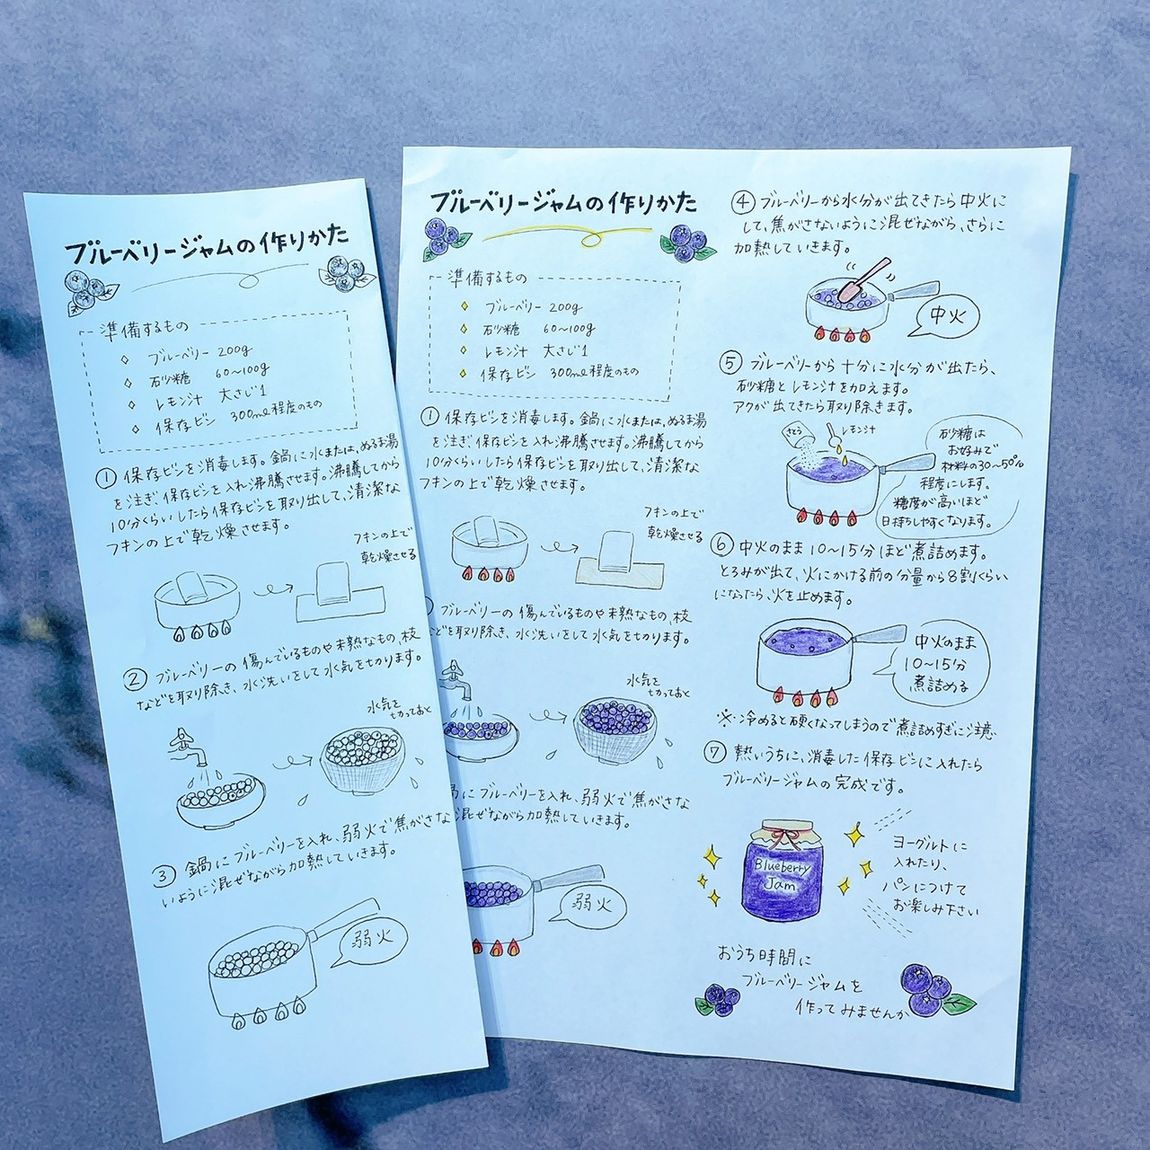 ブルーベリージャムの作りかた
準備するもの
ブルーベリー 200g
砂糖 60~100g
レモン汁 大さじ1
保存ビン 300ml程度のもの
① 保存ビンを消毒します。鍋に水または、ぬるま湯
を注ぎ、保存ビンを入れ沸騰させます。沸騰してから
10分くらいしたら保存ビンを取り出して、清潔な
フキンの上で乾燥させます。
フキンの上で
乾燥させる
② ブルーベリーの傷んでいるものや未熟なもの、枝
などを取り除き、水洗いをして水気をきります。
水気を
きっておく
③ 鍋にブルーベリーを入れ、弱火で焦がさな
いように混ぜながら加熱していきます。
弱火
ブルーベリージャムの作りかた
準備するもの
ブルーベリー 200g
砂糖 60~100g
レモン汁 大さじ1
保存ビン 300ml程度のもの
① 保存ビンを消毒します。鍋に水または、ぬるま湯
を注ぎ、保存ビンを入れ沸騰させます。沸騰してから
10分くらいしたら保存ビンを取り出して、清潔な
フキンの上で乾燥させます。
フキンの上で
乾燥させる
ブルーベリーの傷んでいるものや未熟なもの、枝
どを取り除き、水洗いをして水気をきります。
水気を
きっておく
にブルーベリーを入れ、弱火で焦がさな
混ぜながら加熱していきます。
弱火
④ ブルーベリーから水分が出てきたら中火に
して、焦がさないように混ぜながら、さらに
加熱していきます。
中火
⑤ ブルーベリーから十分に水分が出たら、
砂糖とレモン汁を加えます。
アクが出てきたら取り除きます。
さとう
レモン汁
砂糖は
お好みで
材料の30~50%
程度にします。
糖度が高いほど
日持ちしやすくなります。
⑥ 中火のまま10~15分ほど煮詰めます。
とろみが出て、火にかける前の分量から8割くらい
になったら、火を止めます。
中火のまま
10~15分
煮詰める
※冷めると硬くなってしまうので煮詰めすぎに注意
⑦ 熱いうちに、消毒した保存ビンに入れたら
ブルーベリージャムの完成です。
Blueberry
Jam
ヨーグルトに
入れたり、
パンにつけて
お楽しみ下さい
おうち時間に
ブルーベリージャムを
作ってみませんか